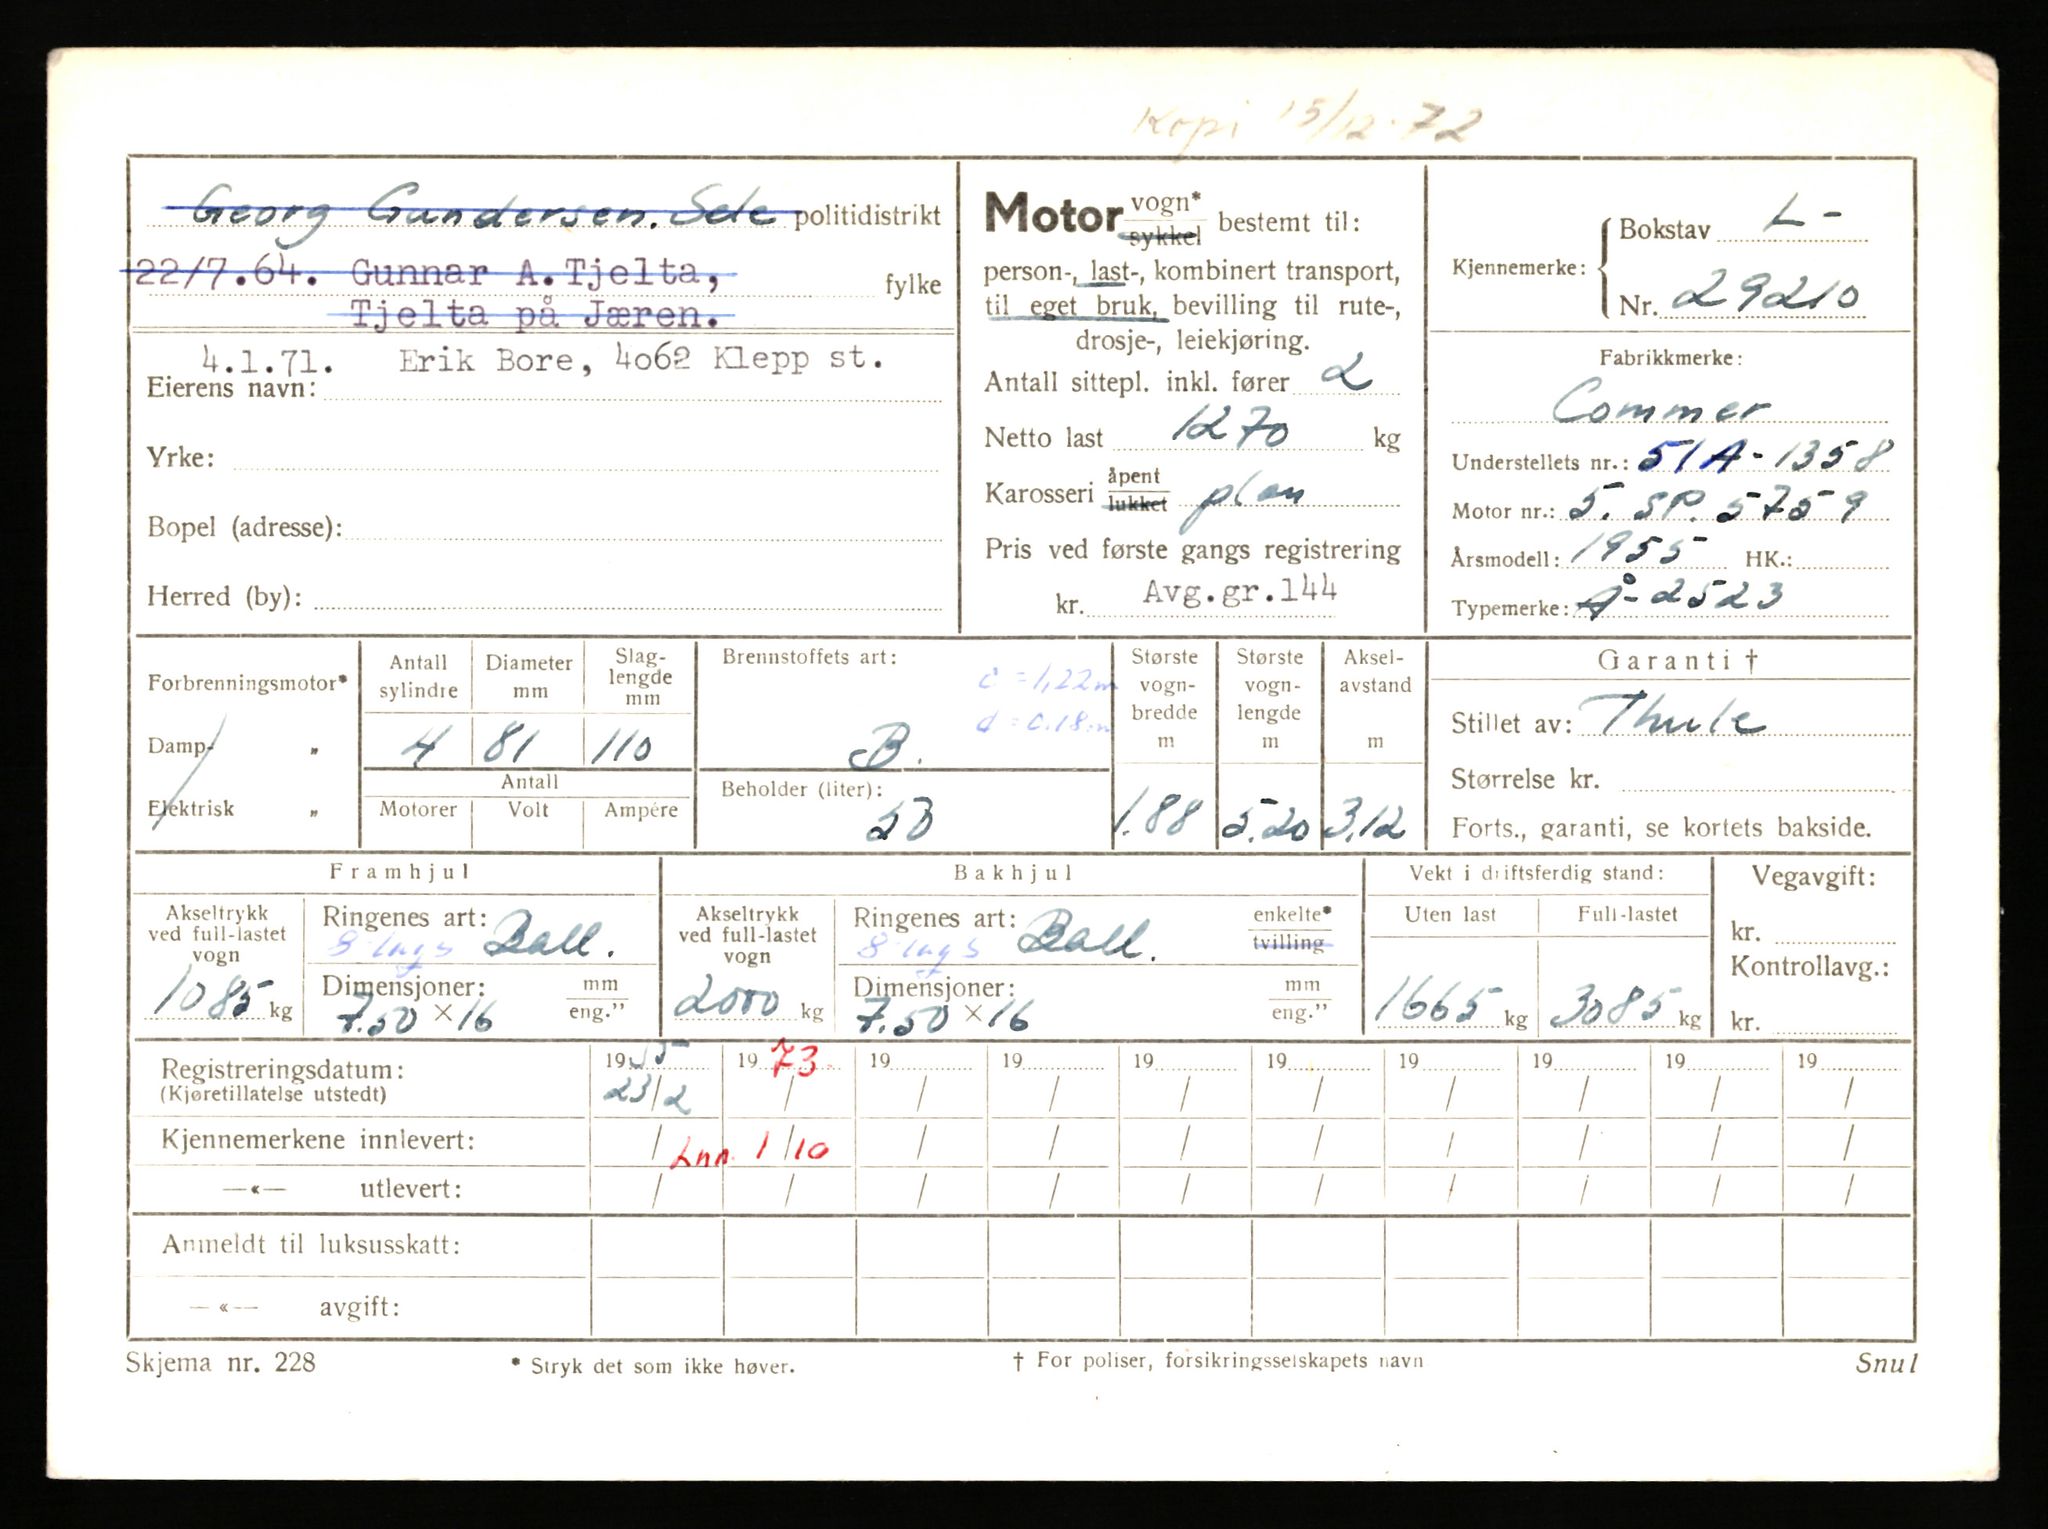 Kopi 15/12-72
Georg Gundersen. Sele politidistrikt
22/7.64. Gunnar A. Tjelta, fylke
Tjelta på Jæren.
4.1.71. Erik Bore, 4062 Klepp st.
Eierens navn:
Yrke:
Bopel (adresse):
Herred (by):
Motor vogn* sykkel bestemt til:
person-, last-, kombinert transport,
til eget bruk, bevilling til rute-,
drosje-, leiekjøring.
Antall sittepl. inkl. fører 2
Netto last 1270 kg
Karosseri åpent lukket plan
Pris ved første gangs registrering
kr. Avg.gr.144
Kjennemerke: Bokstav L-
Nr. 29210
Fabrikkmerke:
Commer
Understellets nr.: 51A-1358
Motor nr.: 5. SP. 5759
Årsmodell: 1955 HK.:
Typemerke: Å-2523
Forbrenningsmotor*
Damp- "
Elektrisk "
Antall sylindre
4
Diameter mm
81
Slag-lengde mm
110
Antall
Motorer Volt Ampére
Brennstoffets art:
c = 1,22m
d = 0.18m
B.
Beholder (liter):
50
Største vogn-bredde m
1.88
Største vogn-lengde m
5.20
Aksel-avstand m
3.12
Garanti †
Stillet av: Thule
Størrelse kr.
Forts., garanti, se kortets bakside.
Framhjul
Akseltrykk ved full-lastet vogn
1085 kg
Ringenes art: 8 lags Ball.
Dimensjoner: mm eng."
7.50 × 16
Bakhjul
Akseltrykk ved full-lastet vogn
2000 kg
Ringenes art: 8 lags Ball. enkelte* tvilling
Dimensjoner: mm eng."
7.50 × 16
Vekt i driftsferdig stand:
Uten last Full-lastet
1665 kg 3085 kg
Vegavgift:
kr.
Kontrollavg.:
kr.
Registreringsdatum: 1955 1973 19 19 19 19 19 19 19 19
(Kjøretillatelse utstedt) 23/2 / / / / / / / / /
Kjennemerkene innlevert: / Inn. 1/10 / / / / / / / /
—«— utlevert: / / / / / / / / / /
Anmeldt til luksusskatt:
—«— avgift:
Skjema nr. 228 * Stryk det som ikke høver. † For poliser, forsikringsselskapets navn Snul